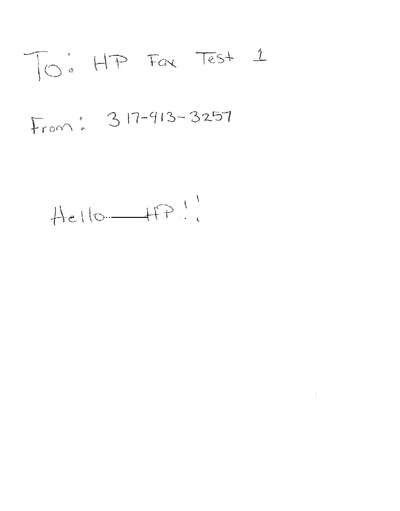 To: HP Fax Test 1
From: 317-913-3257
Hello——HP!!